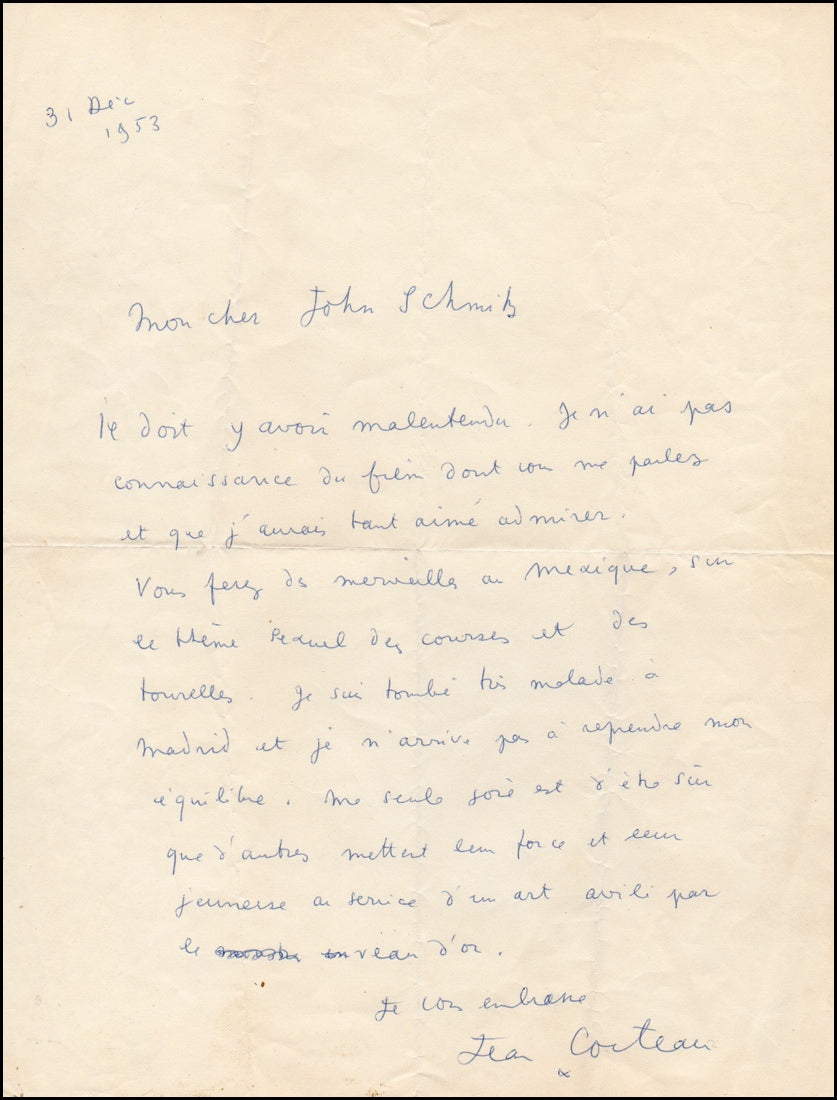 31 Déc
1953
Mon cher John Schmitz
Il doit y avoir malentendu. Je n'ai pas
connaissance du film dont vous me parlez
et que j'aurais tant aimé admirer.
Vous ferez des merveilles au Mexique, sur
le thème sexuel des courses et des
tourelles. Je suis tombé très malade à
Madrid et je n'arrive pas à reprendre mon
équilibre. Ma seule joie est d'être sûr
que d'autres mettent leur force et leur
jeunesse au service d'un art avili par
le veau d'or.
Je vous embrasse
Jean Cocteau